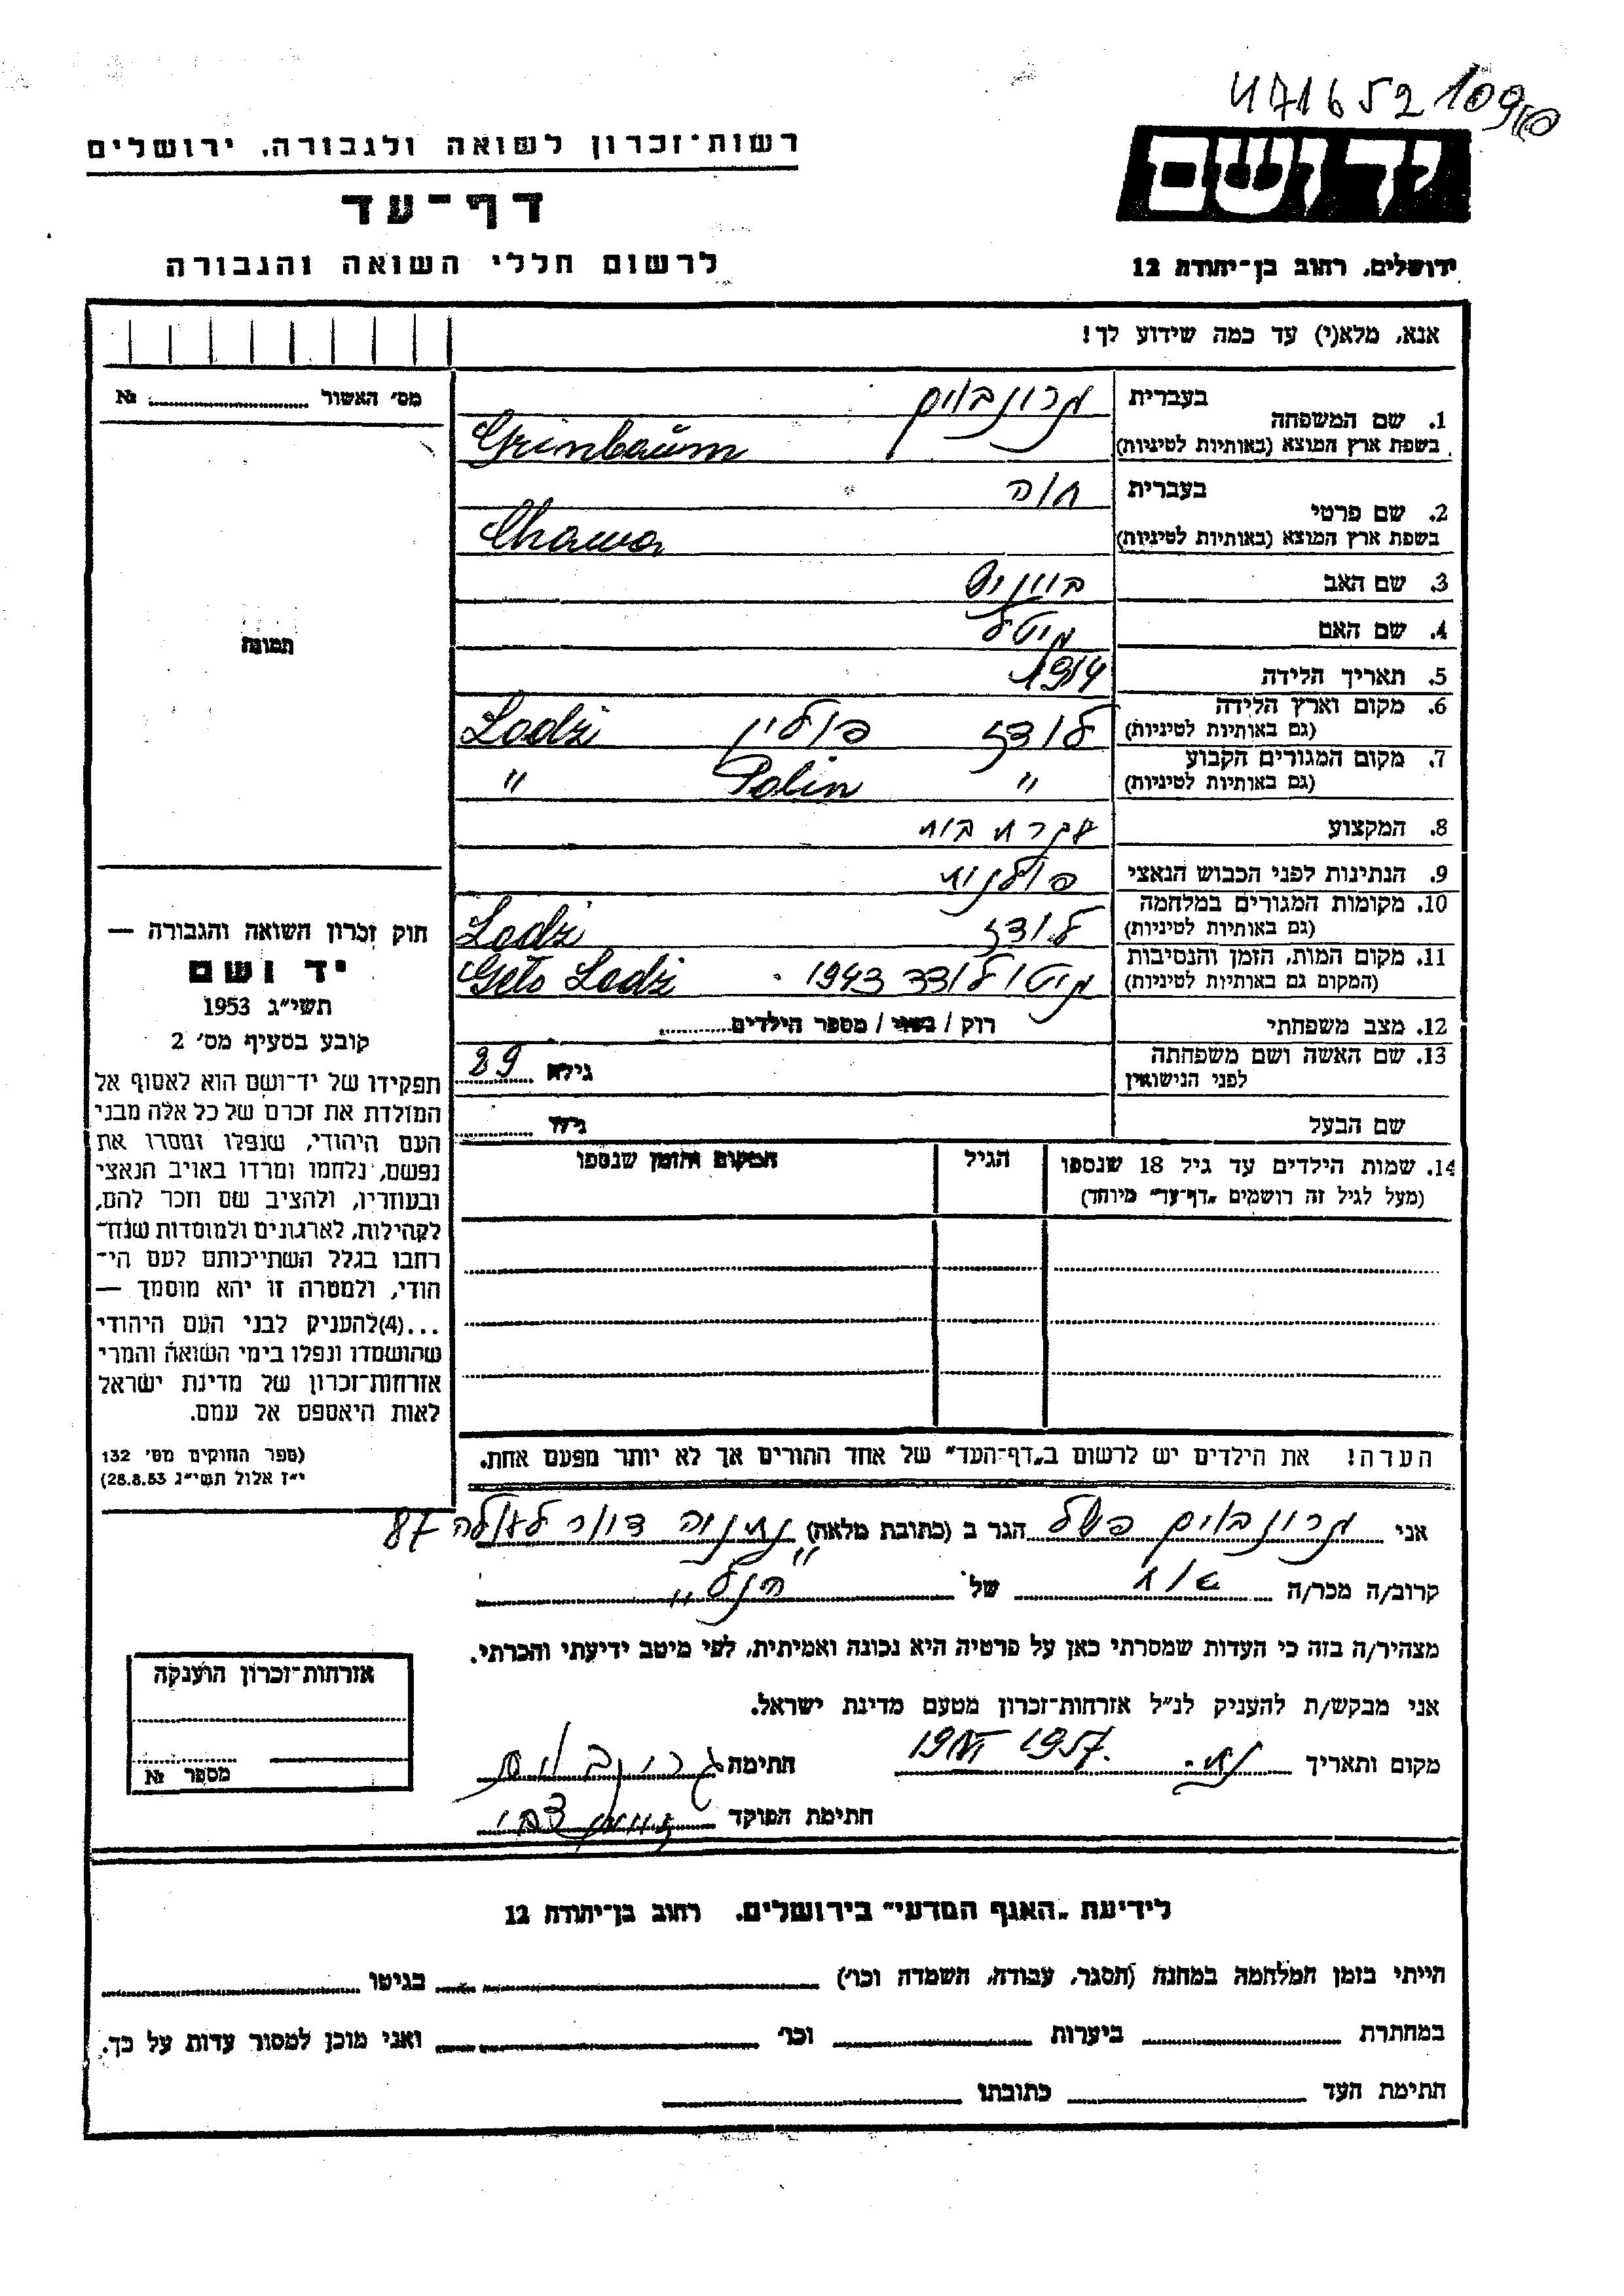 471652 109
רשות-זכרון לשואה ולגבורה, ירושלים
יד ושם
דף-עד
לרשום חללי השואה והגבורה
ירושלים, רחוב בן-יהודה 12
אנא, מלא(י) עד כמה שידוע לך!
מס׳ האשור № 
1. שם המשפחה בעברית גרונבוים
בשפת ארץ המוצא (באותיות לטיניות) Grinbaum
2. שם פרטי בעברית חוה
בשפת ארץ המוצא (באותיות לטיניות) Chawa
3. שם האב
4. שם האם גיטל
5. תאריך הלידה 1914
6. מקום וארץ הלידה (גם באותיות לטיניות) לודז פולין Lodz
7. מקום המגורים הקבוע (גם באותיות לטיניות) " Polin "
8. המקצוע עקרת בית
9. הנתינות לפני הכבוש הנאצי פולנית
10. מקומות המגורים במלחמה (גם באותיות לטיניות) לודז Lodz
11. מקום המות, הזמן והנסיבות (המקום גם באותיות לטיניות) גיטו לודז 1943 Geto Lodz
12. מצב משפחתי רוק / נשוי / מספר הילדים
13. שם האשה ושם משפחתה לפני הנישואין גילה 29
שם הבעל גילו
14. שמות הילדים עד גיל 18 שנספו הגיל המקום והזמן שנספו
(מעל לגיל זה רושמים „דף-עד" מיוחד)
הערה! את הילדים יש לרשום ב„דף-העד" של אחד ההורים אך לא יותר מפעם אחת.
תמונה
חוק זכרון השואה והגבורה —
יד ושם
תשי״ג 1953
קובע בסעיף מס׳ 2
תפקידו של יד-ושם הוא לאסוף אל
המולדת את זכרם של כל אלה מבני
העם היהודי, שנפלו ומסרו את
נפשם, נלחמו ומרדו באויב הנאצי
ובעוזריו, ולהציב שם וזכר להם,
לקהילות, לארגונים ולמוסדות שנח-
רבו בגלל השתייכותם לעם הי-
הודי, ולמטרה זו יהא מוסמך —
...(4)להעניק לבני העם היהודי
שהושמדו ונפלו בימי השואה והמרי
אזרחות-זכרון של מדינת ישראל
לאות היאספם אל עמם.
(ספר החוקים מס׳ 132
י״ז אלול תשי״ג 28.8.53)
אני גרונבוים פישל הגר ב (כתובת מלאה) נתניה דואר לעולה 87
קרוב/ה מכר/ה של "הנ״ל"
מצהיר/ה בזה כי העדות שמסרתי כאן על פרטיה היא נכונה ואמיתית, לפי מיטב ידיעתי והכרתי.
אני מבקש/ת להעניק לנ״ל אזרחות-זכרון מטעם מדינת ישראל.
מקום ותאריך 1957 חתימה גרונבוים
חתימת הפוקד
אזרחות-זכרון הוענקה
מספר №
לידיעת „האגף המדעי" בירושלים, רחוב בן-יהודה 12
הייתי בזמן המלחמה במחנה (הסגר, עבודה, השמדה וכו׳) בגיטו
במחתרת ביערות וכו׳ ואני מוכן למסור עדות על כך.
חתימת העד כתובתו